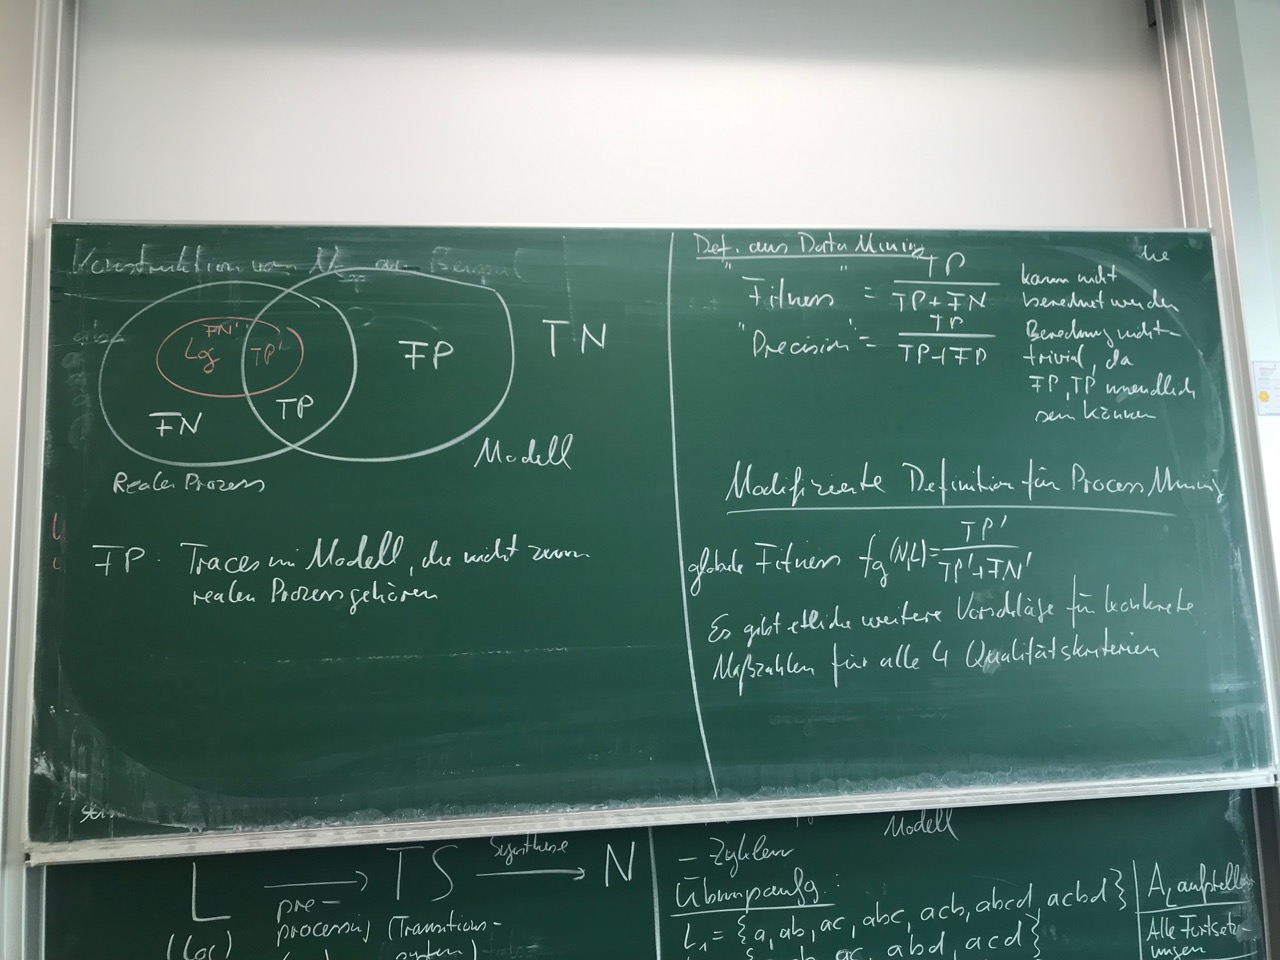 Konstruktion von
FN'
Log
TP'
FP
TN
FN
TP
Modell
Realer Prozess
FP: Traces im Modell, die nicht zum
realen Prozess gehören
Def. aus Data Mining
"Fitness" = TP / TP+FN
kann nicht
berechnet werden
"Precision" = TP / TP+FP
Berechnung nicht
trivial, da
FP, TP unendlich
sein können
Modifizierte Definition für Process Mining
globale Fitness fg(N,L) = TP' / TP'+FN'
Es gibt etliche weitere Vorschläge für konkrete
Maßzahlen für alle 4 Qualitätskriterien
L
pre-
processing
TS
Synthese
N
(Log)
(Transitions-
system)
Modell
- Zyklen
Übungsaufg.:
L₁ = {a, ab, ac, abc, acb, abcd, acbd}
ac, abd, acd}
A_L aufstellen
Alle Fortsetz-
ungen